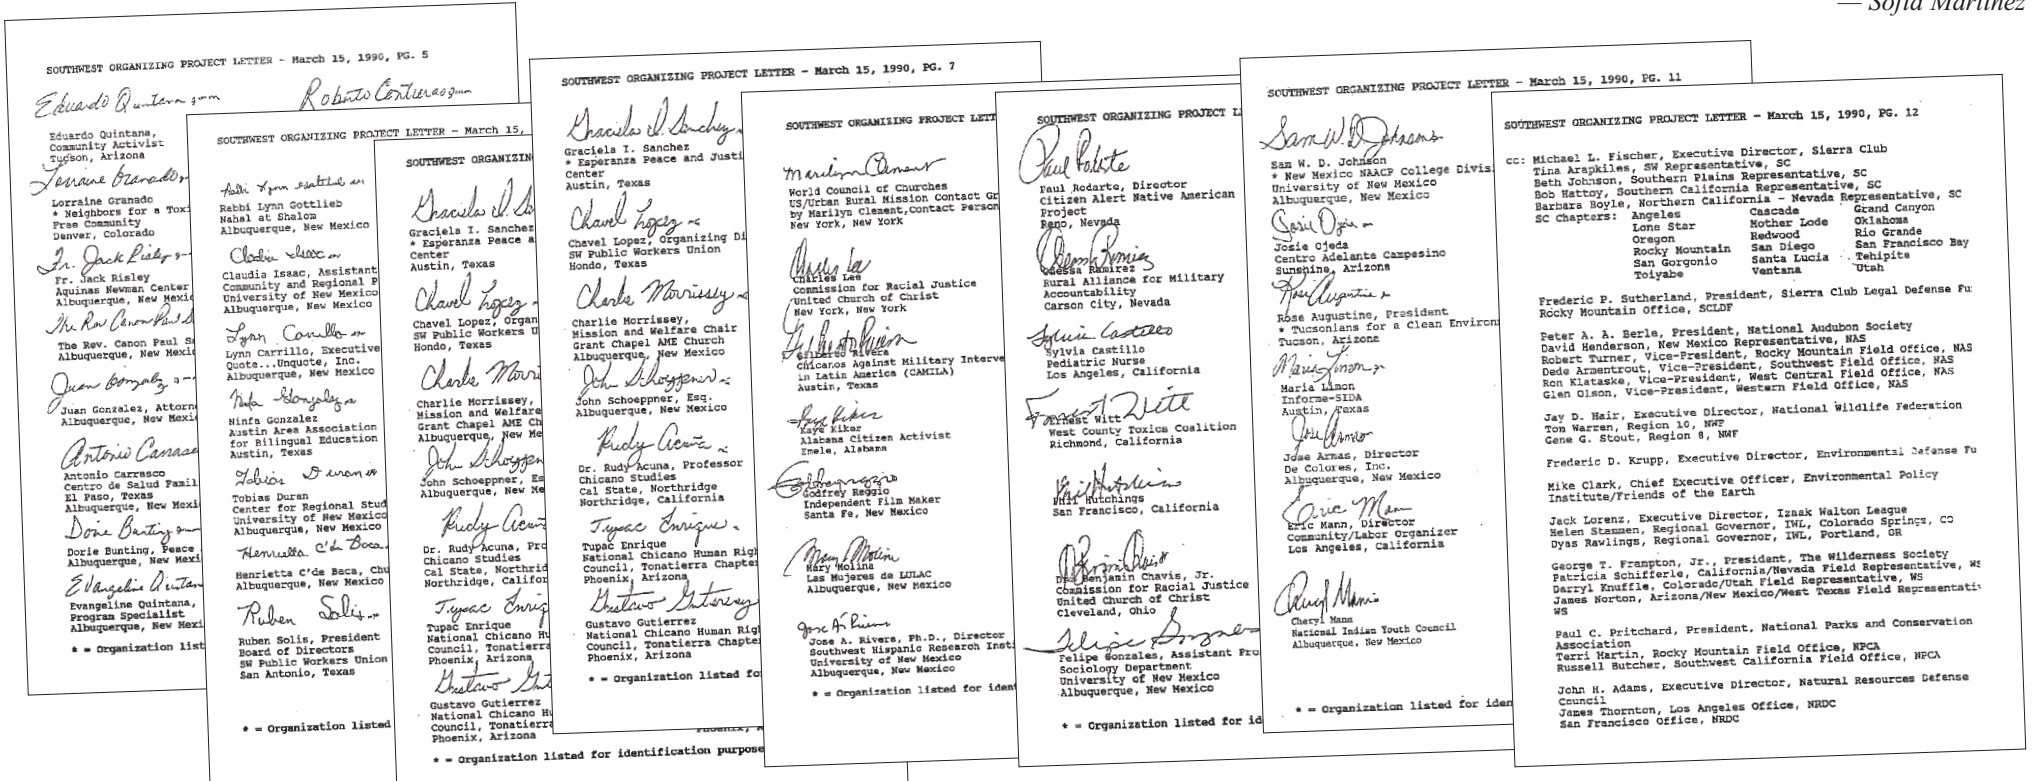 — Sofia Martinez
SOUTHWEST ORGANIZING PROJECT LETTER - March 15, 1990, PG. 5
Eduardo Quintana
Roberto Contreras
Eduardo Quintana,
Community Activist
Tucson, Arizona
Lorraine Granado
Lorraine Granado
* Neighbors for a Toxi
Free Community
Denver, Colorado
Fr. Jack Risley
Fr. Jack Risley
Aquinas Newman Center
Albuquerque, New Mexic
The Rev. Canon Paul S
The Rev. Canon Paul S
Albuquerque, New Mexic
Juan Gonzalez
Juan Gonzalez, Attorn
Albuquerque, New Mexi
Antonio Carrasc
Antonio Carrasco
Centro de Salud Famil
El Paso, Texas
Albuquerque, New Mexi
Dorie Bunting
Dorie Bunting, Peace
Albuquerque, New Mexi
Evangeline Quintan
Evangeline Quintana,
Program Specialist
Albuquerque, New Mexi
* = Organization list
SOUTHWEST ORGANIZING PROJECT LETTER - March 15,
Rabbi Lynn Gottlieb
Rabbi Lynn Gottlieb
Nahal at Shalom
Albuquerque, New Mexico
Claudia Isaac
Claudia Isaac, Assistant
Community and Regional P
University of New Mexico
Albuquerque, New Mexico
Lynn Carrillo
Lynn Carrillo, Executive
Quote...Unquote, Inc.
Albuquerque, New Mexico
Ninfa Gonzalez
Ninfa Gonzalez
Austin Area Association
for Bilingual Education
Austin, Texas
Tobias Duran
Tobias Duran
Center for Regional Stud
University of New Mexico
Albuquerque, New Mexico
Henrietta C'de Baca
Henrietta C'de Baca, Chu
Albuquerque, New Mexico
Ruben Solis
Ruben Solis, President
Board of Directors
SW Public Workers Union
San Antonio, Texas
* = Organization listed
SOUTHWEST ORGANIZIN
Graciela I. Sa
Graciela I. Sanchez
* Esperanza Peace a
Center
Austin, Texas
Chavel Lopez
Chavel Lopez, Organ
SW Public Workers U
Hondo, Texas
Charlie Morri
Charlie Morrissey,
Mission and Welfare
Grant Chapel AME Ch
Albuquerque, New Me
John Schoeppn
John Schoeppner, Es
Albuquerque, New Me
Rudy Acuña
Dr. Rudy Acuna, Pro
Chicano Studies
Cal State, Northrid
Northridge, Califor
Tupac Enriq
Tupac Enrique
National Chicano Hu
Council, Tonatierra
Phoenix, Arizona
Gustavo Gut
Gustavo Gutierrez
National Chicano Hu
Council, Tonatierra
Phoenix, Arizona
* = Organization listed for identification purpose
SOUTHWEST ORGANIZING PROJECT LETTER - March 15, 1990, PG. 7
Graciela I. Sanchez
Graciela I. Sanchez
* Esperanza Peace and Justi
Center
Austin, Texas
Chavel Lopez
Chavel Lopez, Organizing Di
SW Public Workers Union
Hondo, Texas
Charlie Morrissey
Charlie Morrissey,
Mission and Welfare Chair
Grant Chapel AME Church
Albuquerque, New Mexico
John Schoeppner
John Schoeppner, Esq.
Albuquerque, New Mexico
Rudy Acuña
Dr. Rudy Acuna, Professor
Chicano Studies
Cal State, Northridge
Northridge, California
Tupac Enrique
Tupac Enrique
National Chicano Human Righ
Council, Tonatierra Chapte
Phoenix, Arizona
Gustavo Gutierrez
Gustavo Gutierrez
National Chicano Human Rig
Council, Tonatierra Chapte
Phoenix, Arizona
* = Organization listed fo
SOUTHWEST ORGANIZING PROJECT LETT
Marilyn Clement
World Council of Churches
US/Urban Rural Mission Contact Gr
by Marilyn Clement,Contact Person
New York, New York
Charles Lee
Charles Lee
Commission for Racial Justice
United Church of Christ
New York, New York
Gilberto Rivera
Gilberto Rivera
Chicanos Against Military Interve
in Latin America (CAMILA)
Austin, Texas
Kaye Kiker
Kaye Kiker
Alabama Citizen Activist
Emele, Alabama
Godfrey Reggio
Godfrey Reggio
Independent Film Maker
Santa Fe, New Mexico
Mary Molina
Mary Molina
Las Mujeres de LULAC
Albuquerque, New Mexico
Jose A. Rivera
Jose A. Rivera, Ph.D., Director
Southwest Hispanic Research Inst
University of New Mexico
Albuquerque, New Mexico
* = Organization listed for iden
SOUTHWEST ORGANIZING PROJECT L
Paul Rodarte
Paul Rodarte, Director
Citizen Alert Native American
Project
Reno, Nevada
Odessa Ramirez
Odessa Ramirez
Rural Alliance for Military
Accountability
Carson City, Nevada
Sylvia Castillo
Sylvia Castillo
Pediatric Nurse
Los Angeles, California
Ernest Witt
Ernest Witt
West County Toxics Coalition
Richmond, California
Phil Hutchings
Phil Hutchings
San Francisco, California
Dr. Benjamin Chavis, Jr.
Commission for Racial Justice
United Church of Christ
Cleveland, Ohio
Felipe Gonzales
Felipe Gonzales, Assistant Pro
Sociology Department
University of New Mexico
Albuquerque, New Mexico
* = Organization listed for id
SOUTHWEST ORGANIZING PROJECT LETTER - March 15, 1990, PG. 11
Sam W. D. Johnson
Sam W. D. Johnson
* New Mexico NAACP College Divis
University of New Mexico
Albuquerque, New Mexico
Josie Ojeda
Josie Ojeda
Centro Adelante Campesino
Sunshine, Arizona
Rose Augustine
Rose Augustine, President
* Tucsonians for a Clean Environ
Tucson, Arizona
Maria Limon
Maria Limon
Informe-SIDA
Austin, Texas
Jose Armas
Jose Armas, Director
De Colores, Inc.
Albuquerque, New Mexico
Eric Mann
Eric Mann, Director
Community/Labor Organizer
Los Angeles, California
Cheryl Mann
Cheryl Mann
National Indian Youth Council
Albuquerque, New Mexico
* = Organization listed for iden
SOUTHWEST ORGANIZING PROJECT LETTER - March 15, 1990, PG. 12
cc: Michael L. Fischer, Executive Director, Sierra Club
Tina Arapkiles, SW Representative, SC
Beth Johnson, Southern Plains Representative, SC
Bob Hattoy, Southern California Representative, SC
Barbara Boyle, Northern California - Nevada Representative, SC
SC Chapters: Angeles Cascade Grand Canyon
Lone Star Mother Lode Oklahoma
Oregon Redwood Rio Grande
Rocky Mountain San Diego San Francisco Bay
San Gorgonio Santa Lucia Tehipite
Toiyabe Ventana Utah
Frederic P. Sutherland, President, Sierra Club Legal Defense Fu
Rocky Mountain Office, SCLDF
Peter A. A. Berle, President, National Audubon Society
David Henderson, New Mexico Representative, NAS
Robert Turner, Vice-President, Rocky Mountain Field Office, NAS
Dede Armentrout, Vice-President, Southwest Field Office, NAS
Ron Klataske, Vice-President, West Central Field Office, NAS
Glen Olson, Vice-President, Western Field Office, NAS
Jay D. Hair, Executive Director, National Wildlife Federation
Tom Warren, Region 10, NWF
Gene G. Stout, Region 8, NWF
Frederic D. Krupp, Executive Director, Environmental Defense Fu
Mike Clark, Chief Executive Officer, Environmental Policy
Institute/Friends of the Earth
Jack Lorenz, Executive Director, Izaak Walton League
Helen Stammen, Regional Governor, IWL, Colorado Springs, CO
Dyas Rawlings, Regional Governor, IWL, Portland, OR
George T. Frampton, Jr., President, The Wilderness Society
Patricia Schifferle, California/Nevada Field Representative, WS
Darryl Knuffle, Colorado/Utah Field Representative, WS
James Norton, Arizona/New Mexico/West Texas Field Representati
WS
Paul C. Pritchard, President, National Parks and Conservation
Association
Terri Martin, Rocky Mountain Field Office, NPCA
Russell Butcher, Southwest California Field Office, NPCA
John H. Adams, Executive Director, Natural Resources Defense
Council
James Thornton, Los Angeles Office, NRDC
San Francisco Office, NRDC